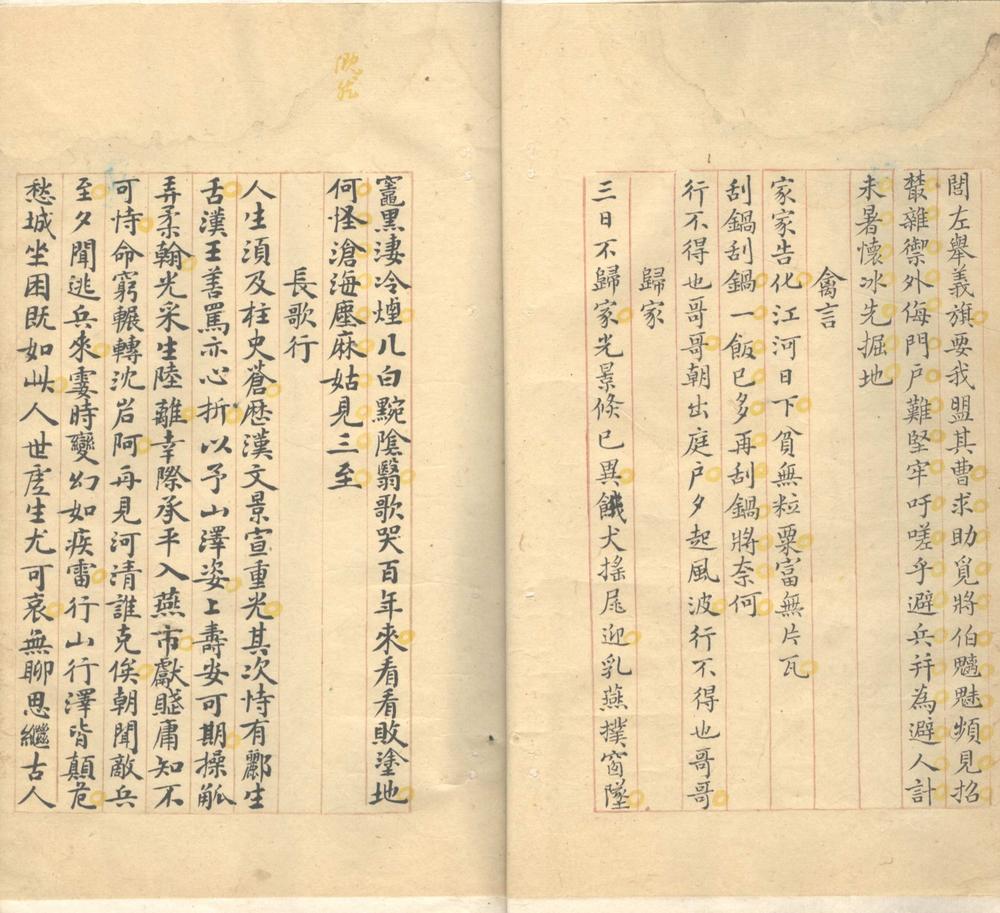 閭左舉義旗要我盟其曹求助覓將伯魑魅頻見招
叢雜禦外侮門戶難堅牢吁嗟乎避兵并為避人計
未暑懷冰先掘地
禽言
家家告化江河日下貧無粒粟富無片瓦
刮鍋刮鍋一飯已多再刮鍋將奈何
行不得也哥哥朝出庭戶夕起風波行不得也哥哥
歸家
三日不歸家光景倏已異餓犬搖尾迎乳燕撲窗墜
竈黑淒冷煙几白黦陰翳歌哭百年來看看敗塗地
何怪滄海塵麻姑見三至
長歌行
人生須及柱史蒼歷漢文景宣重光其次恃有酈生
舌漢王善罵亦心折以予山澤姿上壽安可期操觚
弄柔翰光采生陸離幸際承平入燕市獻賦庸知不
可恃命窮輾轉沈岩阿再見河清誰克俟朝聞敵兵
至夕聞逃兵來霎時變幻如疾雷行山行澤皆顛危
愁城坐困既如此人世虛生尤可哀無聊思繼古人